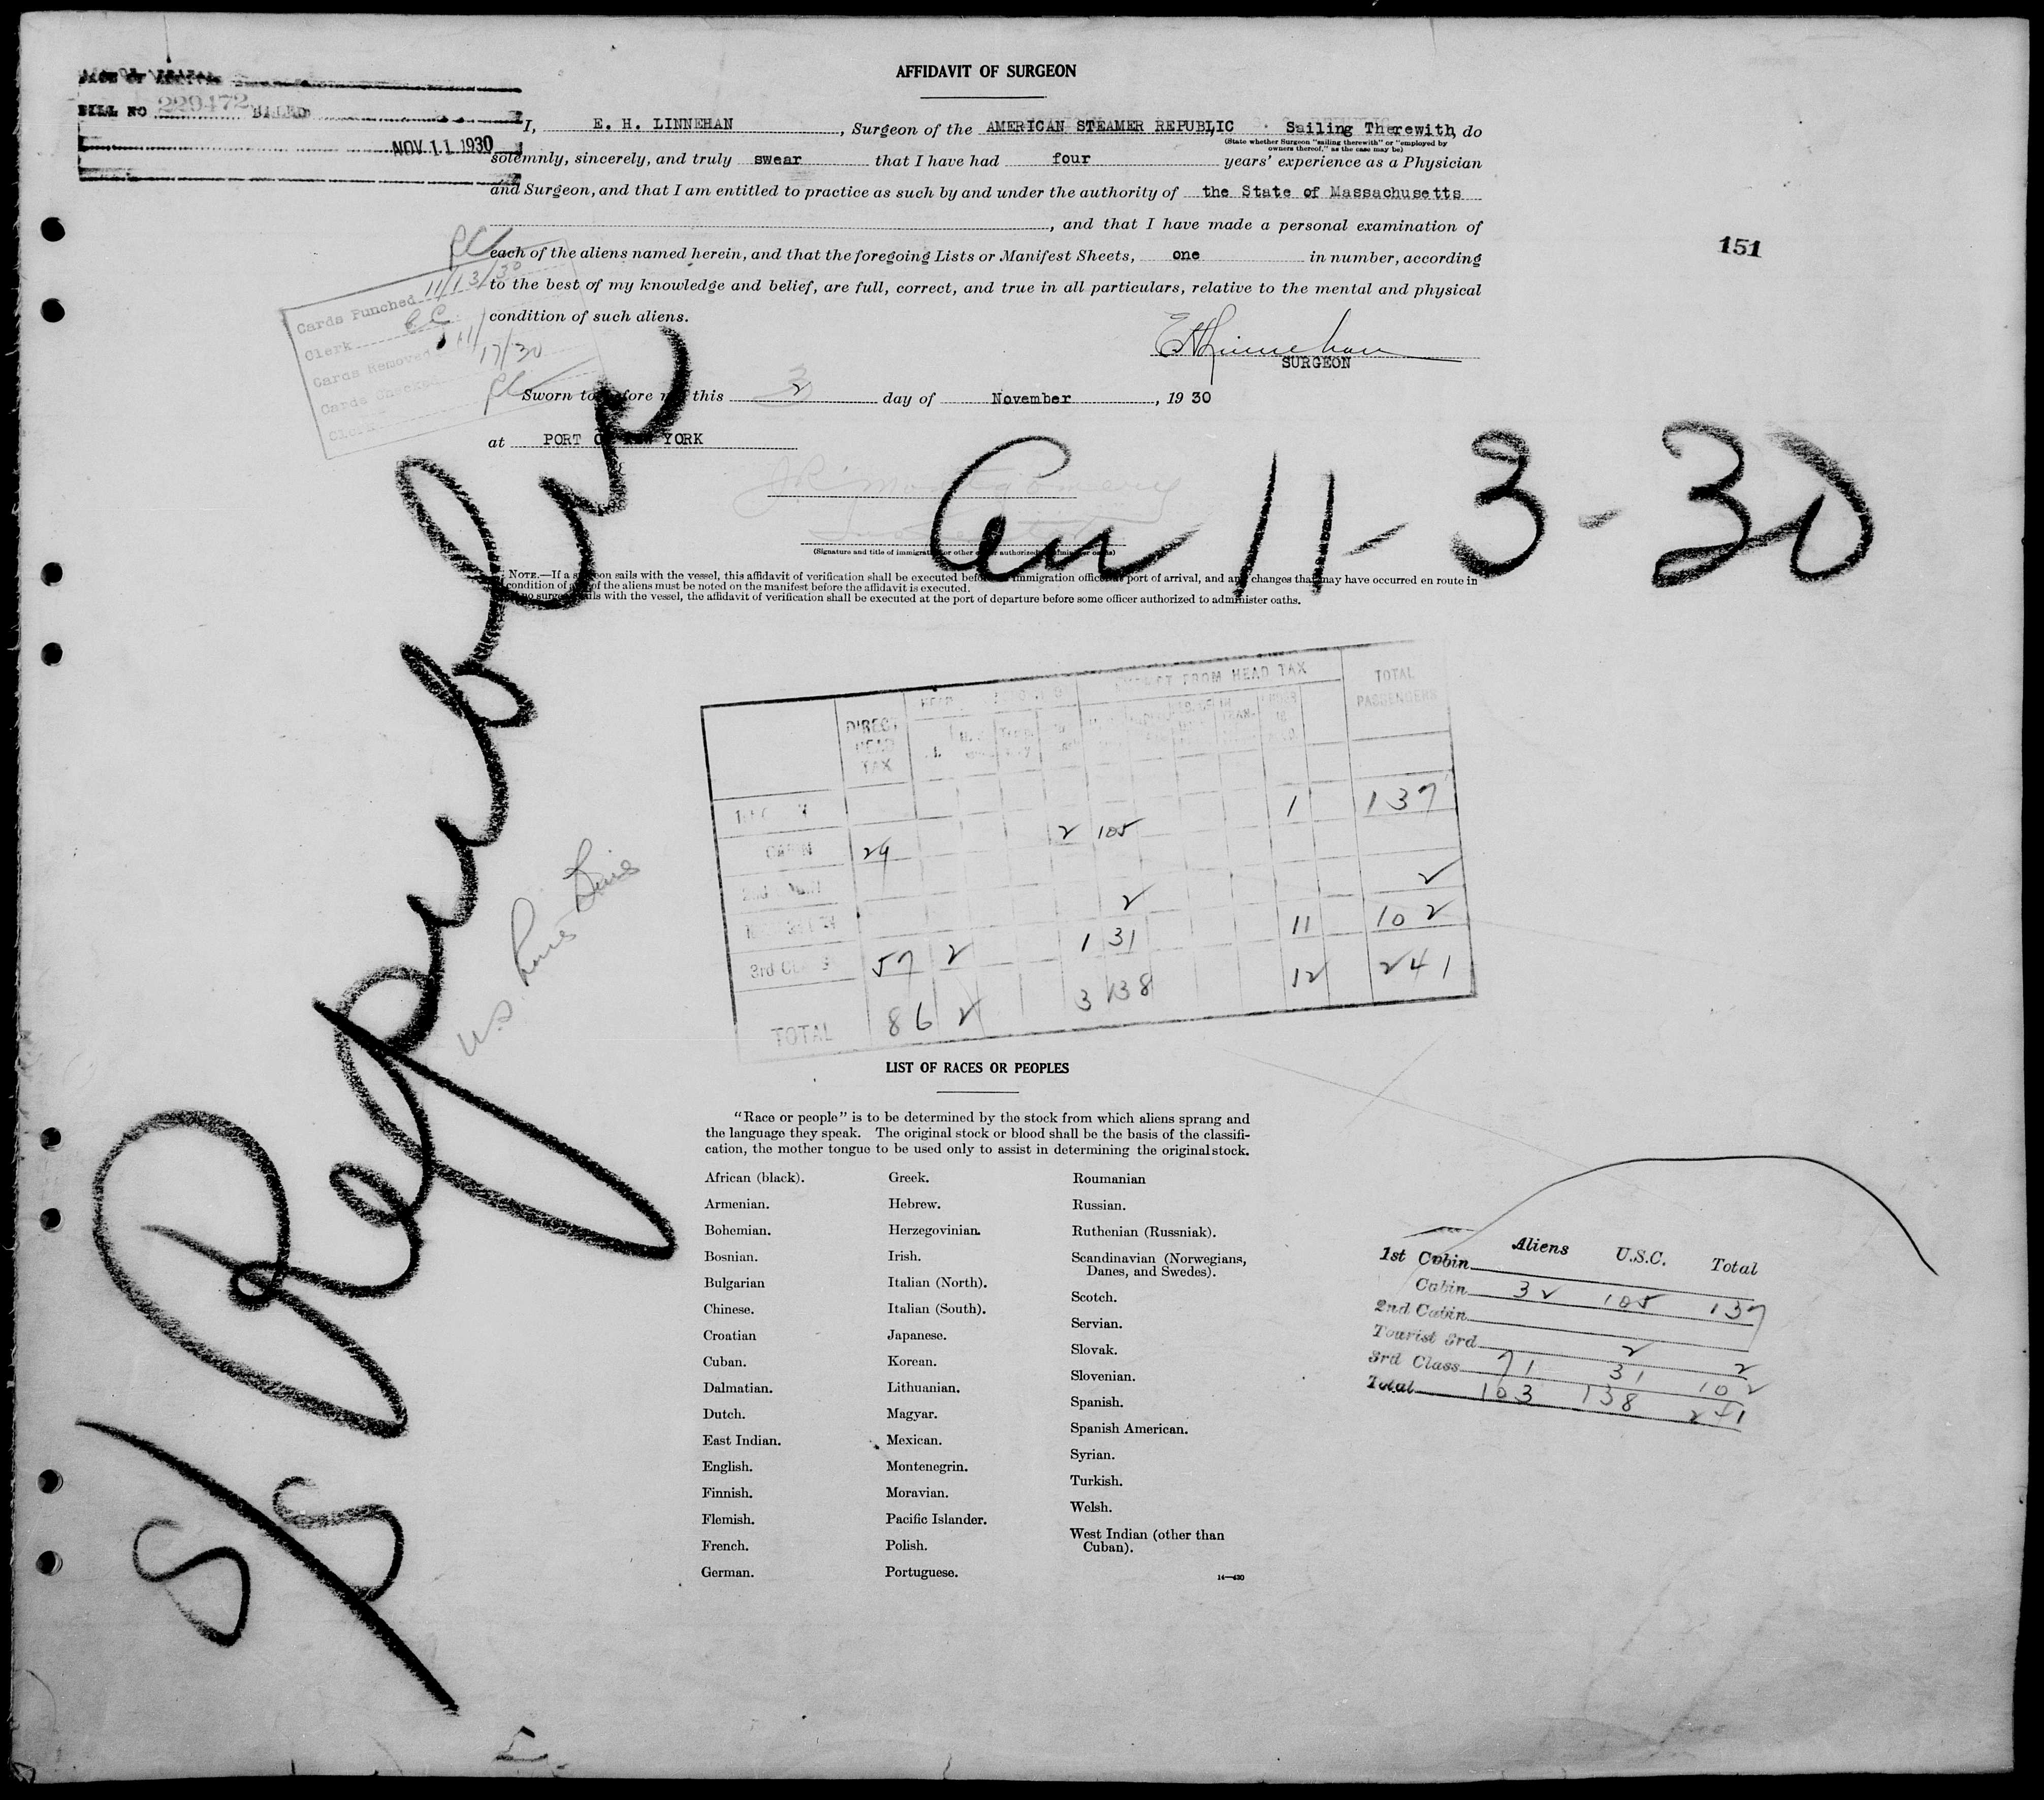 AFFIDAVIT OF SURGEON
BILL NO 229472 BILLED
NOV 11 1930
I, E. H. LINNEHAN, Surgeon of the AMERICAN STEAMER REPUBLIC, Sailing Therewith, do
(State whether Surgeon "sailing therewith" or "employed by
owners thereof," as the case may be)
solemnly, sincerely, and truly swear that I have had four years' experience as a Physician
and Surgeon, and that I am entitled to practice as such by and under the authority of the State of Massachusetts
, and that I have made a personal examination of
each of the aliens named herein, and that the foregoing Lists or Manifest Sheets, one in number, according
to the best of my knowledge and belief, are full, correct, and true in all particulars, relative to the mental and physical
condition of such aliens.
151
Cards Punched 11/13/30
Clerk
Cards Removed 11/17/30
Cards Checked
Clerk
EHLinnehan
SURGEON
Sworn to before me this day of November, 19 30
at PORT OF NEW YORK
Montgomery
(Signature and title of immigration or other officer authorized to administer oaths)
Arr 11-3-30
NOTE.—If a surgeon sails with the vessel, this affidavit of verification shall be executed before immigration officer at port of arrival, and any changes that may have occurred en route in
condition of any of the aliens must be noted on the manifest before the affidavit is executed.
If no surgeon sails with the vessel, the affidavit of verification shall be executed at the port of departure before some officer authorized to administer oaths.
S/S Republic
U.S. Lines
DIRECT HEAD TAX EXEMPT FROM HEAD TAX TOTAL PASSENGERS
CABIN 29 2 105 1 137
2 2
3rd CLASS 57 2 1 31 11 102
TOTAL 86 2 3 138 12 241
LIST OF RACES OR PEOPLES
"Race or people" is to be determined by the stock from which aliens sprang and
the language they speak. The original stock or blood shall be the basis of the classifi-
cation, the mother tongue to be used only to assist in determining the original stock.
African (black).
Armenian.
Bohemian.
Bosnian.
Bulgarian
Chinese.
Croatian
Cuban.
Dalmatian.
Dutch.
East Indian.
English.
Finnish.
Flemish.
French.
German.
Greek.
Hebrew.
Herzegovinian.
Irish.
Italian (North).
Italian (South).
Japanese.
Korean.
Lithuanian.
Magyar.
Mexican.
Montenegrin.
Moravian.
Pacific Islander.
Polish.
Portuguese.
Roumanian
Russian.
Ruthenian (Russniak).
Scandinavian (Norwegians,
Danes, and Swedes).
Scotch.
Servian.
Slovak.
Slovenian.
Spanish.
Spanish American.
Syrian.
Turkish.
Welsh.
West Indian (other than
Cuban).
14—430
Aliens U.S.C. Total
1st Cabin
Cabin 32 105 137
2nd Cabin
Tourist 3rd 2 2
3rd Class 71 31 102
Total 103 138 241